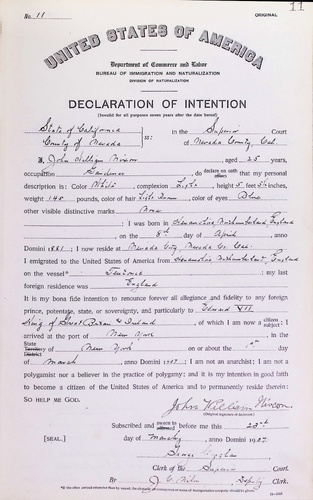 11
No. 11
ORIGINAL
UNITED STATES OF AMERICA
Department of Commerce and Labor
BUREAU OF IMMIGRATION AND NATURALIZATION
DIVISION OF NATURALIZATION
DECLARATION OF INTENTION
(Invalid for all purposes seven years after the date hereof)
State of California
County of Nevada ss: In the Superior Court
of Nevada County, Cal.
I, John William, aged 25 years,
occupation Gardener, do declare on oath affirm that my personal
description is: Color White, complexion Light, height 5 feet inches,
weight 145 pounds, color of hair Light Brown, color of eyes Blue
other visible distinctive marks None
I was born in Northumberland, England
on the 8th day of April, anno
Domini 1881; I now reside at Nevada City, Nevada Co. Cal.
I emigrated to the United States of America from Northumberland, England
on the vessel* Teutonic; my last
foreign residence was England
It is my bona fide intention to renounce forever all allegiance and fidelity to any foreign
prince, potentate, state, or sovereignty, and particularly to Edward VII
King of Great Britain & Ireland, of which I am now a citizen subject; I
arrived at the port of New York, in the
State Territory District of New York on or about the day
of March, anno Domini; I am not an anarchist; I am not a
polygamist nor a believer in the practice of polygamy; and it is my intention in good faith
to become a citizen of the United States of America and to permanently reside therein:
SO HELP ME GOD.
John William
(Original signature of declarant)
Subscribed and sworn to affirmed before me this 23rd
[SEAL.] day of March, anno Domini 1907
George
Clerk of the Superior Court.
By J. C., Deputy Clerk.